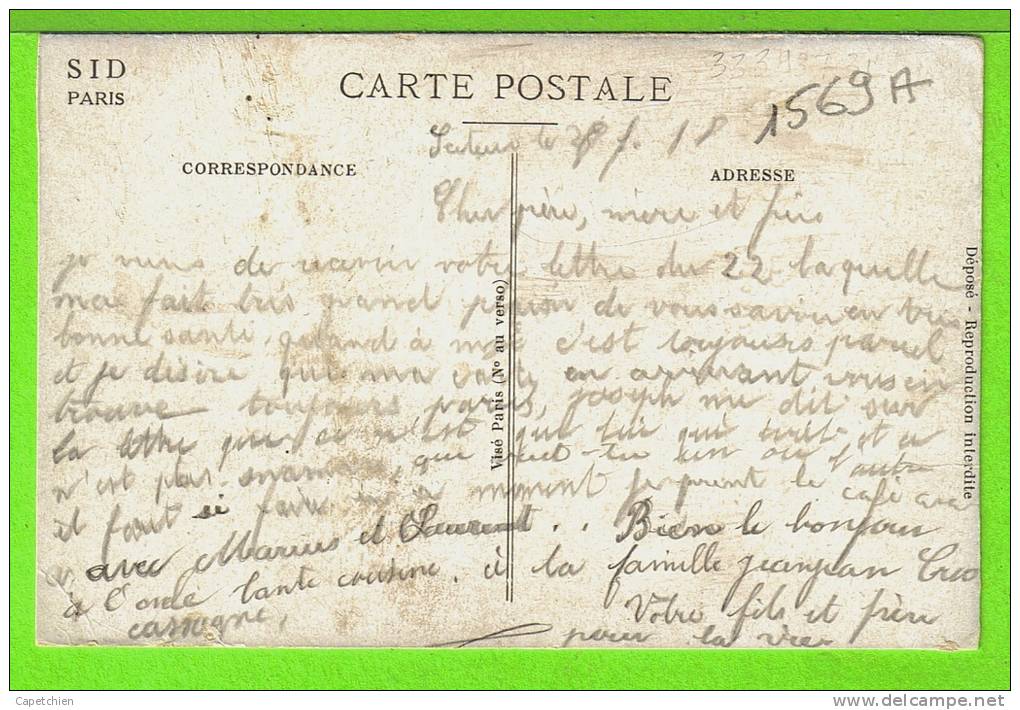 SID
PARIS
CARTE POSTALE
1569 A
Secteur le 28 f. 18
CORRESPONDANCE
ADRESSE
Cher père, mère et
je viens de votre lettre du 22 laquelle
ma fait tres grand de vous savoir en tres
bonne santé quand à moi c'est toujours pareil
et je désire que ma carte en arrivant vous en
trouve toujours pareil, joseph me dit sur
la lettre que ce n'est que lui qui écrit et ce
n'est pas maman, que veut-tu un ou l'autre
il faut si faire moment je prent le café
avec Marius et Laurent .. Bien le bonjour
à l'oncle tante cousine. à la famille jeanjean
cassagne,
Votre fils et frère
pour la vie
Visé Paris (N° au verso)
Déposé - Reproduction interdite
Capetchien
delcampe.net